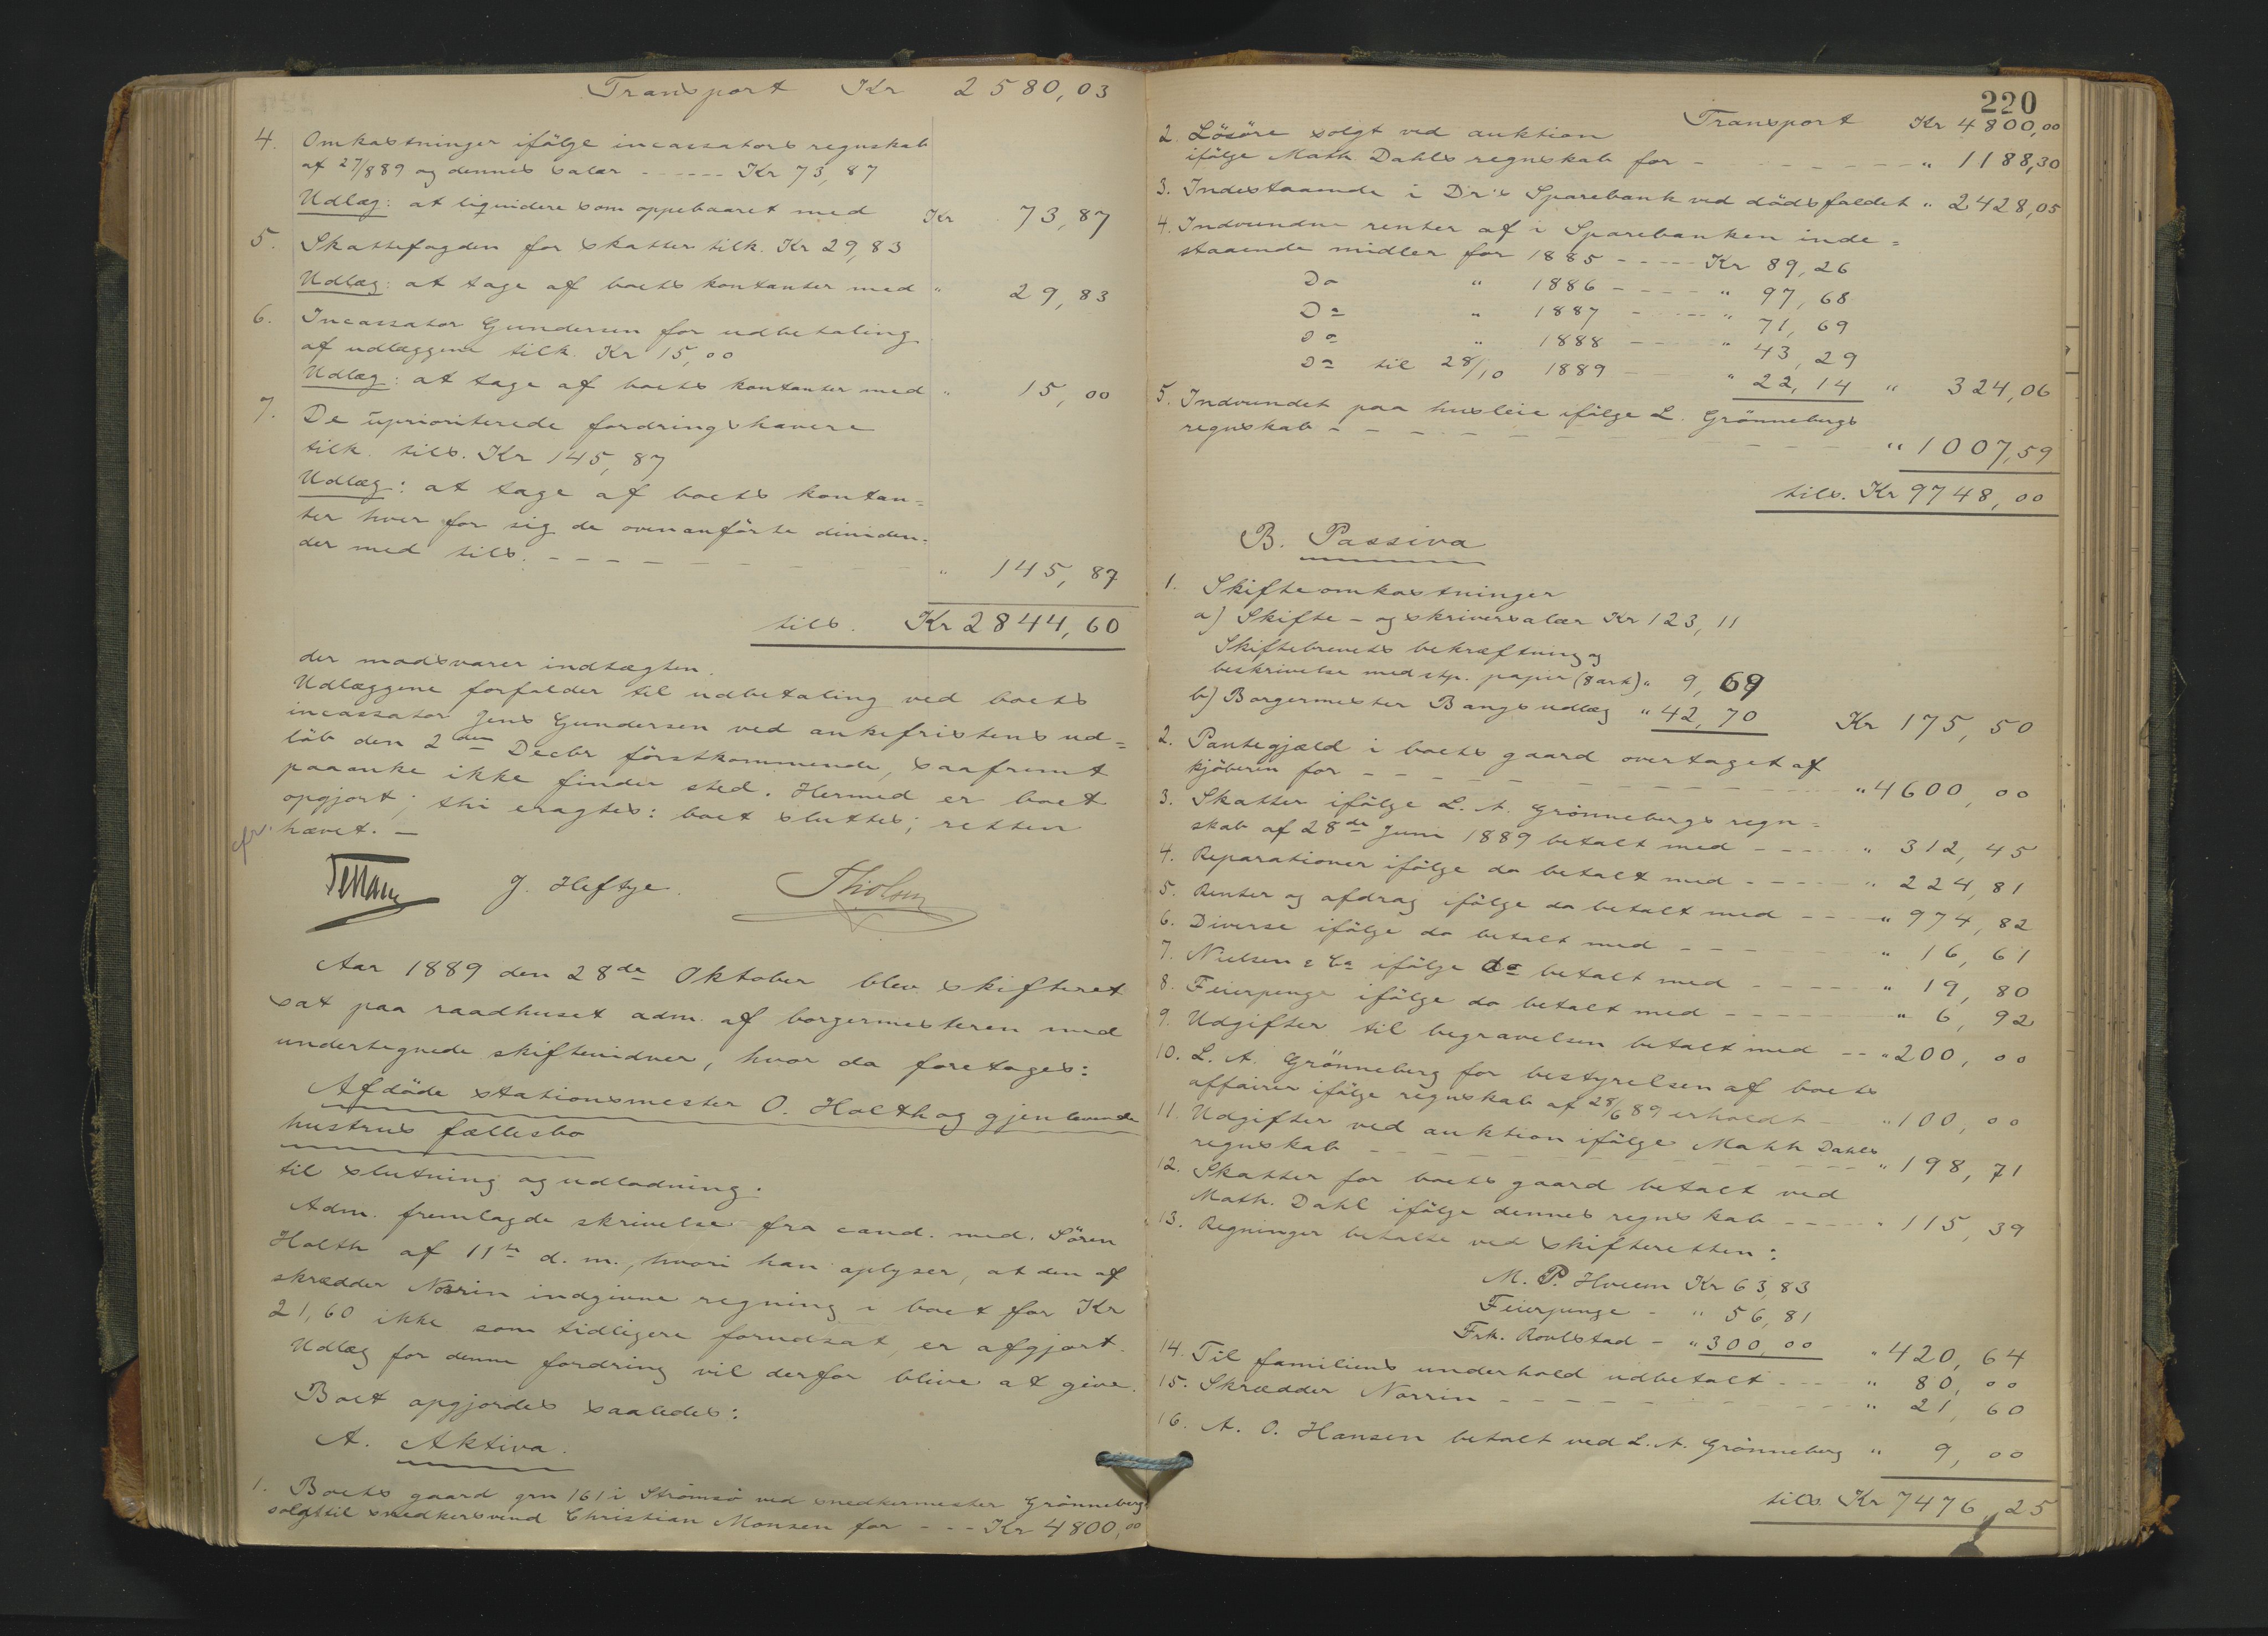 Transport Kr 2580,03
4. Omkostninger ifölge incassators regnskab
af 27/8 89 og dennes salær ------ Kr 73,87
Udlæg: at liqvidere som oppebaaret med Kr 73,87
5. Skattefogden for skatter tilk. Kr 29,83
Udlæg: at tage af boets kontanter med " 29,83
6. Incassator Gundersen for udbetaling
af udlæggene tilk. Kr 15,00
Udlæg: at tage af boets kontanter med " 15,00
7. De uprioriterede fordringshavere
tilk. tils. Kr 145,87
Udlæg: at tage af boets kontan=
ter hver for sig de ovenanförte dividen-
der med tils. - - - - - - - " 145,87
tils. Kr 2844,60
der modsvarer indtægten.
Udlæggene forfalder til udbetaling ved boets
incassator Jens Gundersen ved ankefristens ud=
löb den 2den Decbr förstkommende, saafremt
paaanke ikke finder sted. Hermed er boet
opgjort; thi eragtes: boet sluttes; retten
hævet. —
J. Heftye. Tholsen
Aar 1889 den 28de Oktober blev skifteret
sat paa raadhuset adm. af borgermesteren med
undertegnede skiftevidner, hvor da foretages:
Afdöde stationsmester O. Holth og gjenlevende
hustrus fællesbo
til slutning og udlodning.
Adm. fremlagde skrivelse fra cand. med. Sören
Holth af 11te d. m., hvori han oplyser, at den af
skrædder Norrin indgivne regning i boet for Kr
21,60 ikke som tidligere forudsat, er afgjort.
Udlæg for denne fordring vil derfor blive at give.
Boet opgjordes saaledes:
A. Aktiva.
1. Boets gaard grn 161 i Strömsö ved snedkermester Grönneberg
solgt til snedkersvend Christian Monsen for - - - Kr 4800,00
220
Transport Kr 4800,00
2. Lösöre solgt ved auktion
ifölge Math. Dahls regnskab for - - - - - " 1188,30
3. Indestaaende i Dr's Sparebank ved dödsfaldet " 2428,05
4. Indvundne renter af i Sparebanken inde=
staaende midler for 1885 - - - - Kr 89,26
Do " 1886 - - - - " 97,68
Do " 1887 - - - - " 71,69
Do " 1888 - - - - " 43,29
Do til 28/10 1889 - - - " 22,14 " 324,06
5. Indvundet paa husleie ifölge L. Grönnebergs
regnskab - - - - - - - - - " 1007,59
tils. Kr 9748,00
B. Passiva
1. Skifteomkostninger
a) Skifte- og skriversalær Kr 123,11
Skiftebrevets bekræftning og
beskrivelse med stp. papir (8 ark) " 9,69
b) Borgermester Bangs udlæg " 42,70 Kr 175,50
2. Pantegjæld i boets gaard overtaget af
kjöberen for - - - - - - - - " 4600,00
3. Skatter ifölge L. A. Grönnebergs regn=
skab af 28de Juni 1889 betalt med - - - - " 312,45
4. Reparationer ifölge do betalt med - - - - " 224,81
5. Renter og afdrag ifölge do betalt med - - - " 974,82
6. Diverse ifölge do betalt med - - - - " 16,61
7. Nielsen & Co ifölge do betalt med - - - - " 19,80
8. Feierpenge ifölge do betalt med - - - - " 6,92
9. Udgifter til begravelsen betalt med - - " 200,00
10. L. A. Grönneberg for bestyrelsen af boets
affairer ifölge regnskab af 28/6 89 erholdt - " 100,00
11. Udgifter ved auktion ifölge Math Dahls
regnskab - - - - - - - - - " 198,71
12. Skatter for boets gaard betalt ved
Math. Dahl ifölge dennes regnskab - - - - " 115,39
13. Regninger betalte ved skifteretten:
M. P. Hveem Kr 63,83
Feierpenge - " 56,81
Frk. Rovlstad - " 300,00 " 420,64
14. Til familiens underhold udbetalt - - - " 80,00
15. Skrædder Norrin - - - - - - - " 21,60
16. A. O. Hansen betalt ved L. A. Grönneberg " 9,00
tils. Kr 7476,25